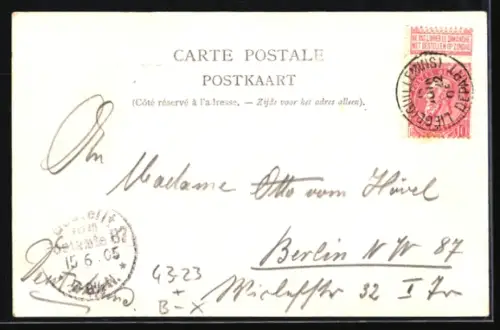 NE PAS LIVRER LE DIMANCHE
NIET BESTELLEN OP ZONDAG
CARTE POSTALE
POSTKAART
(Côté réservé à l'adresse. — Zijde voor het adres alleen).
LIEGE (GUILLEMINS)
DEPART
10
An
Madame Otto vom Hövel
Berlin N W 87
Wiclefstr 32 I Tr
Bestellt
vom
Postamte 87
15.6.05
43-23
+
B-X